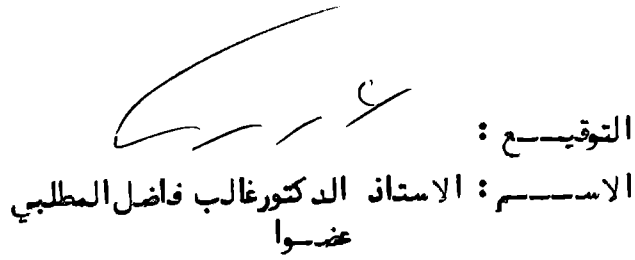 التوقيــع :
الاســـــم : الاستاذ الدكتور غالب فاضل المطلبي
عضــوا